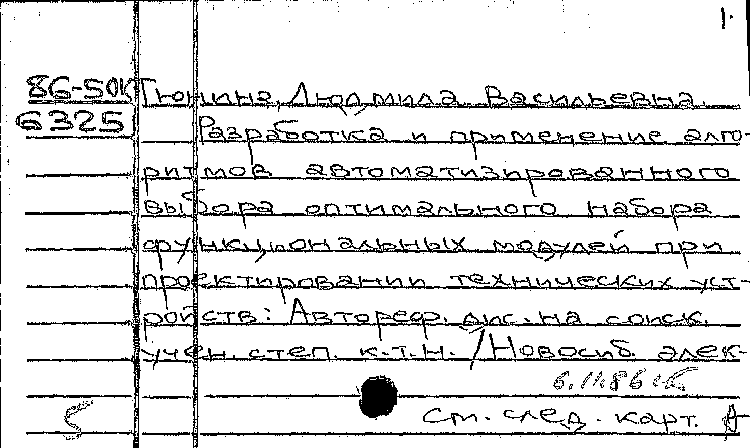 1.
86-50К Тюнина, Людмила Васильевна.
6325 Разработка и применение алго-
ритмов автоматизированного
выбора оптимального набора
функциональных модулей при
проектировании технических уст-
ройств: Автореф. дис. на соиск.
учен. степ. к.т.н. / Новосиб. элек-
6.11.86
5 См. след. карт.